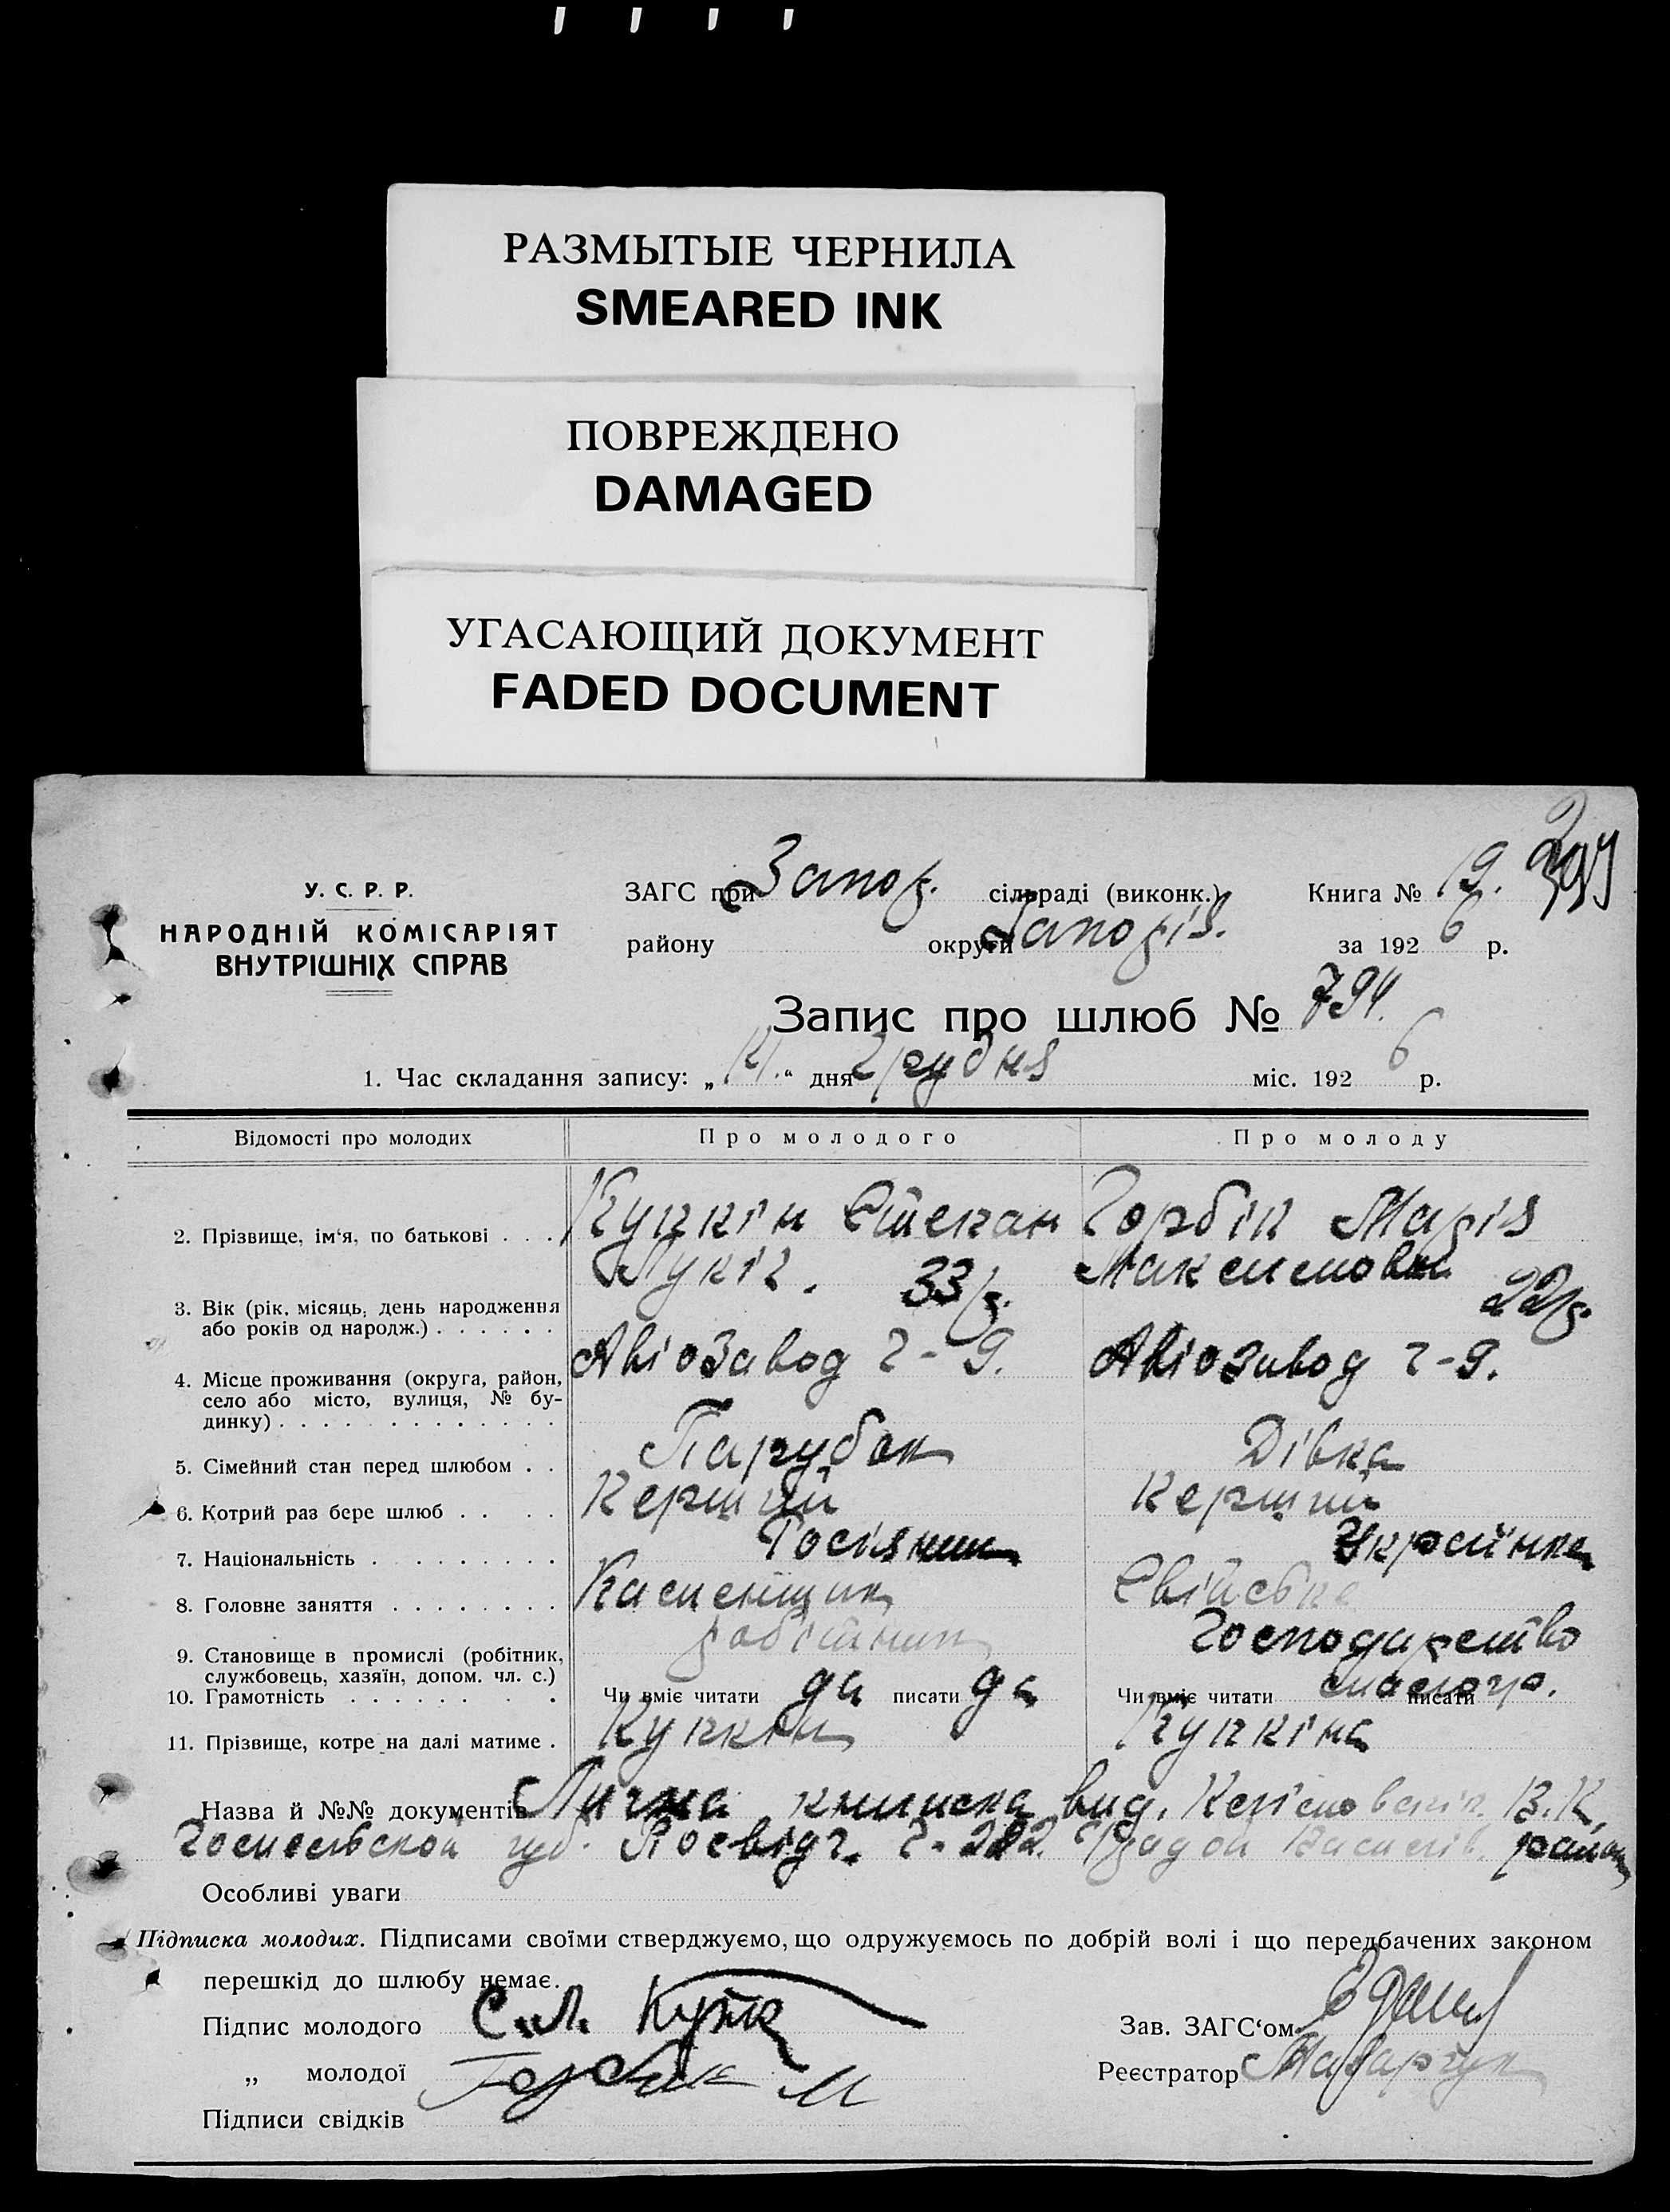 РАЗМЫТЫЕ ЧЕРНИЛА
SMEARED INK
ПОВРЕЖДЕНО
DAMAGED
УГАСАЮЩИЙ ДОКУМЕНТ
FADED DOCUMENT
У. С. Р. Р.
НАРОДНІЙ КОМІСАРІЯТ
ВНУТРІШНІХ СПРАВ
ЗАГС при Запор. сільраді (виконк.) Книга № 19.
району округи Запоріз. за 1926 р.
Запис про шлюб № 794.
1. Час складання запису: „ “ дня Грудня міс. 1926 р.
Відомості про молодих Про молодого Про молоду
2. Прізвище, ім‘я, по батькові . . . Степан Горбік Марія
Лукіч. Максимовна
3. Вік (рік, місяць, день народження 33/р. 22/р.
або років од народж.) . . . . . .
4. Місце проживання (округа, район, Авіозавод 2-9. Авіозавод 2-9.
село або місто, вулиця, № бу-
динку) . . . . . . . . . . . . .
5. Сімейний стан перед шлюбом . . Парубок Дівка
6. Котрий раз бере шлюб . . . . Перший Перший
7. Національність . . . . . . . . . Росіянин Українка
8. Головне заняття . . . . . . . . Каменщик Свійське
9. Становище в промислі (робітник, робітник Господарство
службовець, хазяїн, допом. чл. с.)
10. Грамотність . . . . . . . . Чи вміє читати да писати да Чи вміє читати малогр. писати
11. Прізвище, котре на далі матиме .
Назва й №№ документів Лична книжка вид. В.К.
губ. Посвідч. район
Особливі уваги
Підписка молодих. Підписами своїми стверджуємо, що одружуємось по добрій волі і що передбачених законом
перешкід до шлюбу немає.
Підпис молодого С.Л. Зав. ЗАГС‘ом
„ молодої Горбик М Реєстратор
Підписи свідків